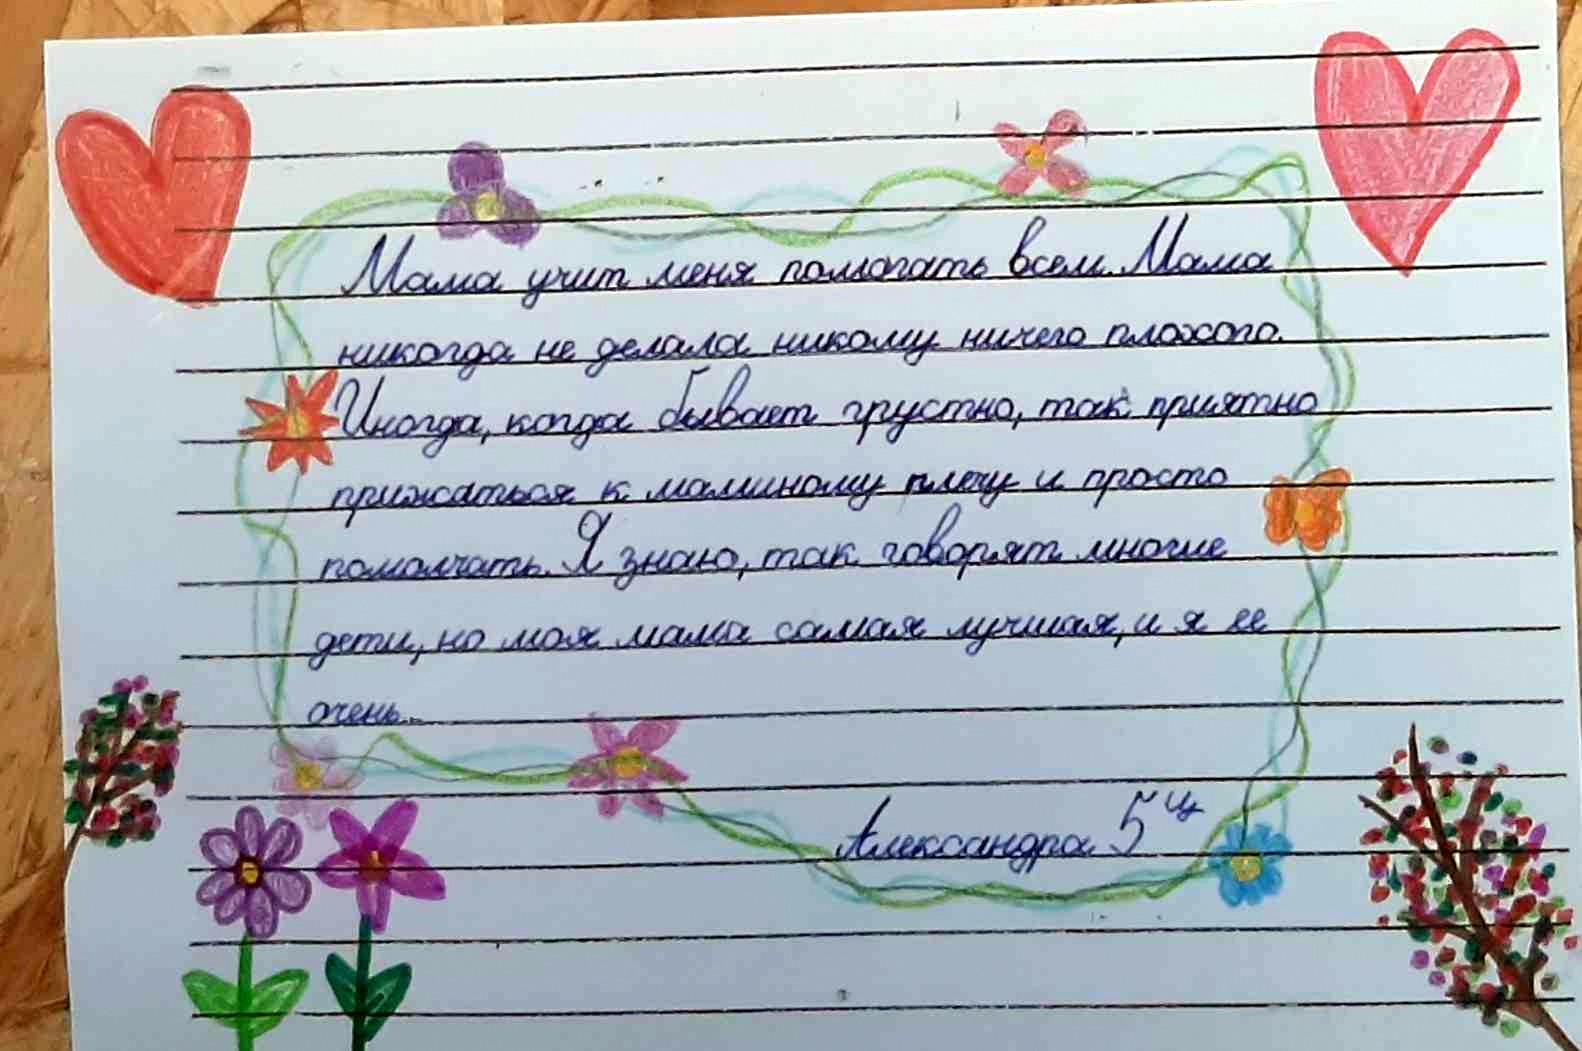 Мама учит меня помогать всем. Мама
никогда не делала никому ничего плохого.
Иногда, когда бывает грустно, так приятно
прижаться к маминому плечу и просто
помолчать. Я знаю, так говорят многие
дети, но моя мама самая лучшая, и я ее
очень...
Александра 5 "Ц"